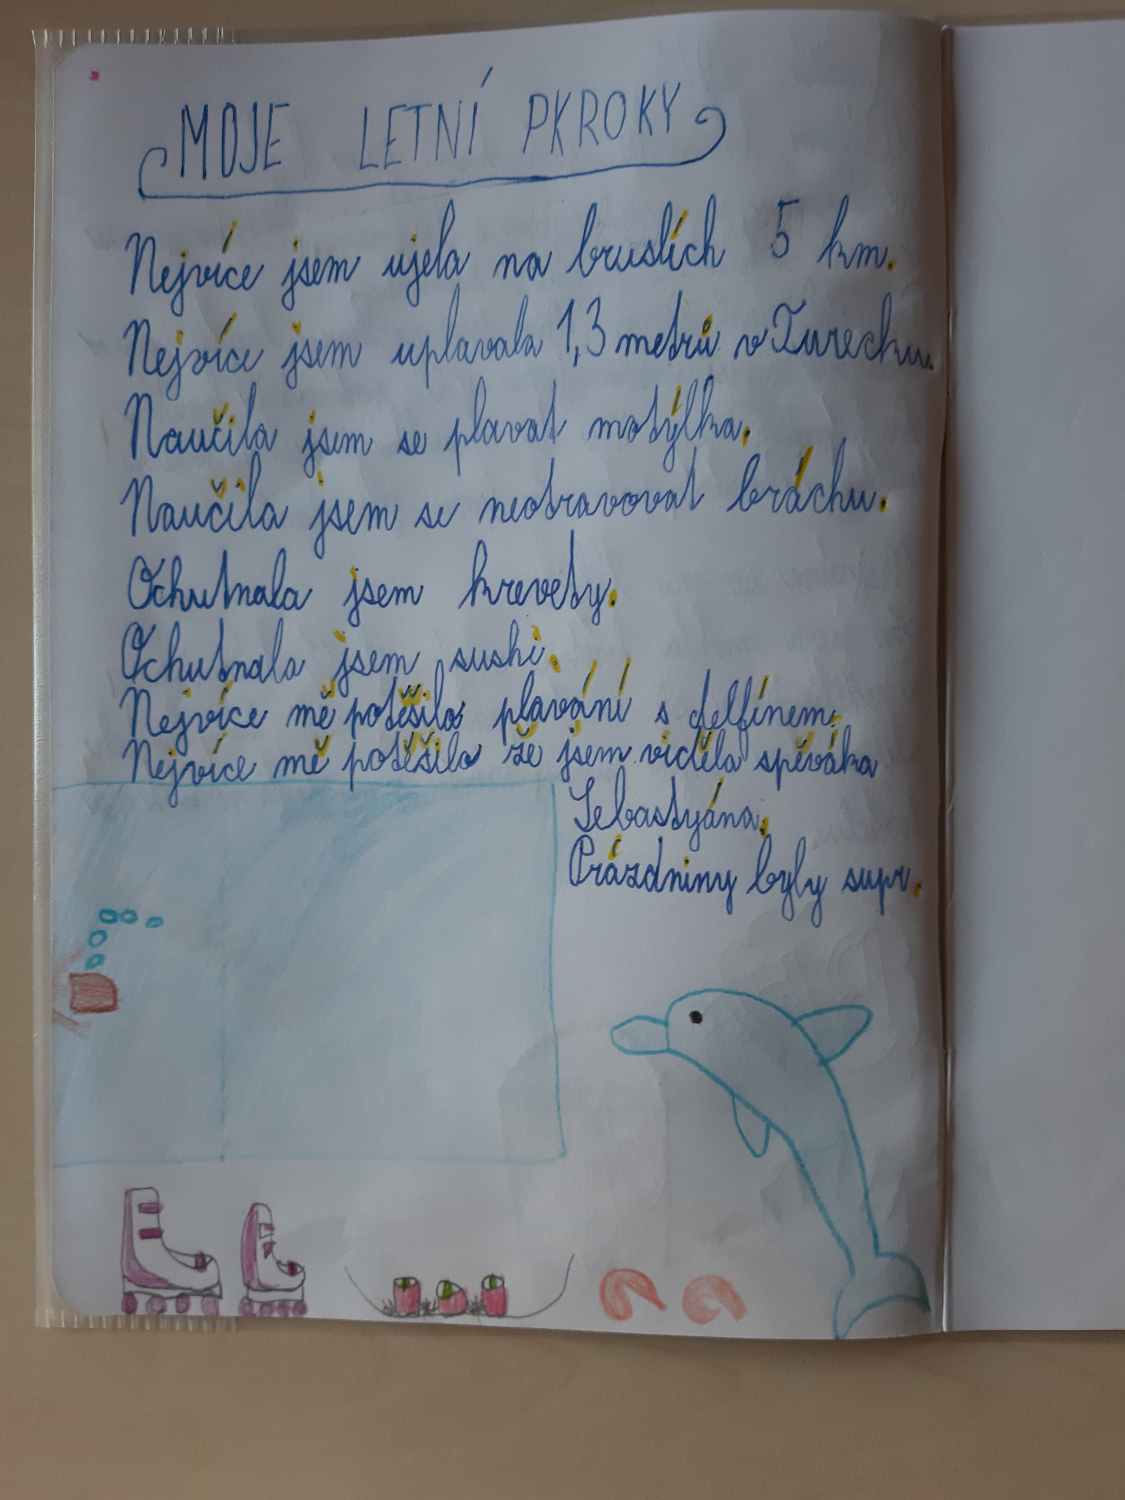 MOJE LETNÍ PKROKY
Nejvíce jsem ujela na bruslích 5 km.
Nejvíce jsem uplavala 1,3 metrů v Turecku.
Naučila jsem se plavat motýlka.
Naučila jsem se neotravovat bráchu.
Ochutnala jsem krevety.
Ochutnala jsem sushi.
Nejvíce mě potěšilo plavání s delfínem.
Nejvíce mě potěšilo že jsem viděla spěváka
Sebastyána.
Prázdniny byly supr.